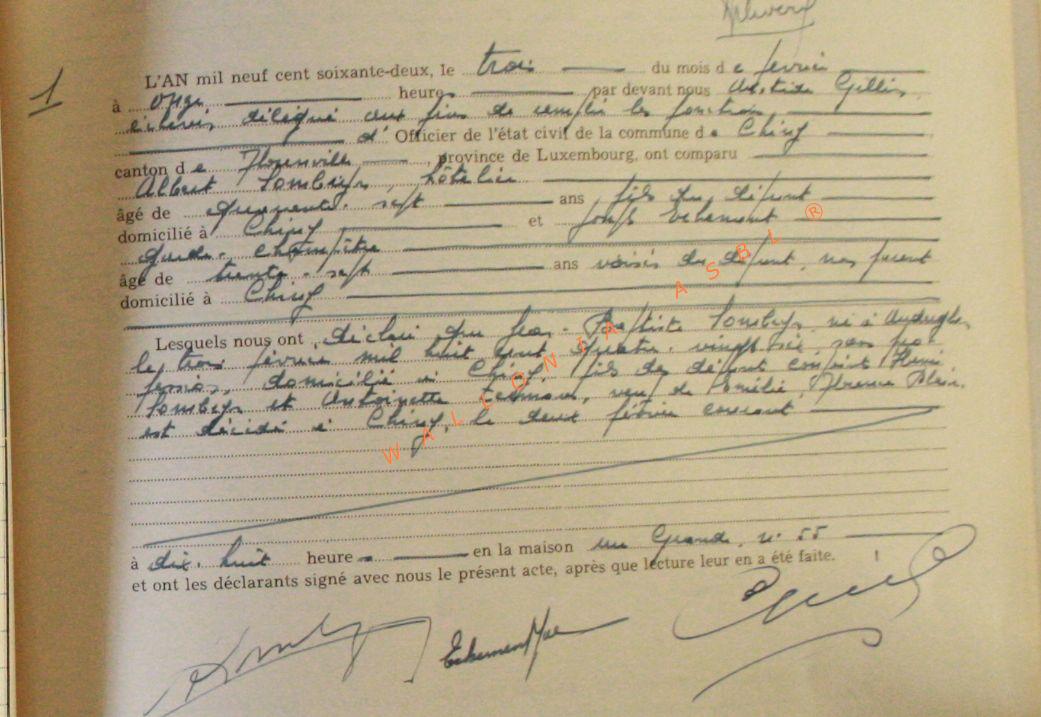 1
L'AN mil neuf cent soixante-deux, le trois du mois de février
à onze heures par devant nous Gillis,
échevin délégué aux fins de remplir les fonctions
d' Officier de l'état civil de la commune de Chiny
canton de Florenville, province de Luxembourg, ont comparu
Albert hôtelier
âgé de quarante-sept ans fils du défunt
domicilié à Chiny et Joseph
garde-champêtre
âgé de trente-sept ans voisin du défunt, non parent
domicilié à Chiny
Lesquels nous ont déclaré que Jean-Baptiste né à
le trois février mil huit cent quatre-vingt sans pro-
fession, domicilié à Chiny, fils des défunts conjoints Henri
et Antoinette veuf de Emélie, Florence
est décédé à Chiny, le deux février courant
à dix-huit heures en la maison rue Grande, n° 55
et ont les déclarants signé avec nous le présent acte, après que lecture leur en a été faite.
WALLONIA ASBL ®